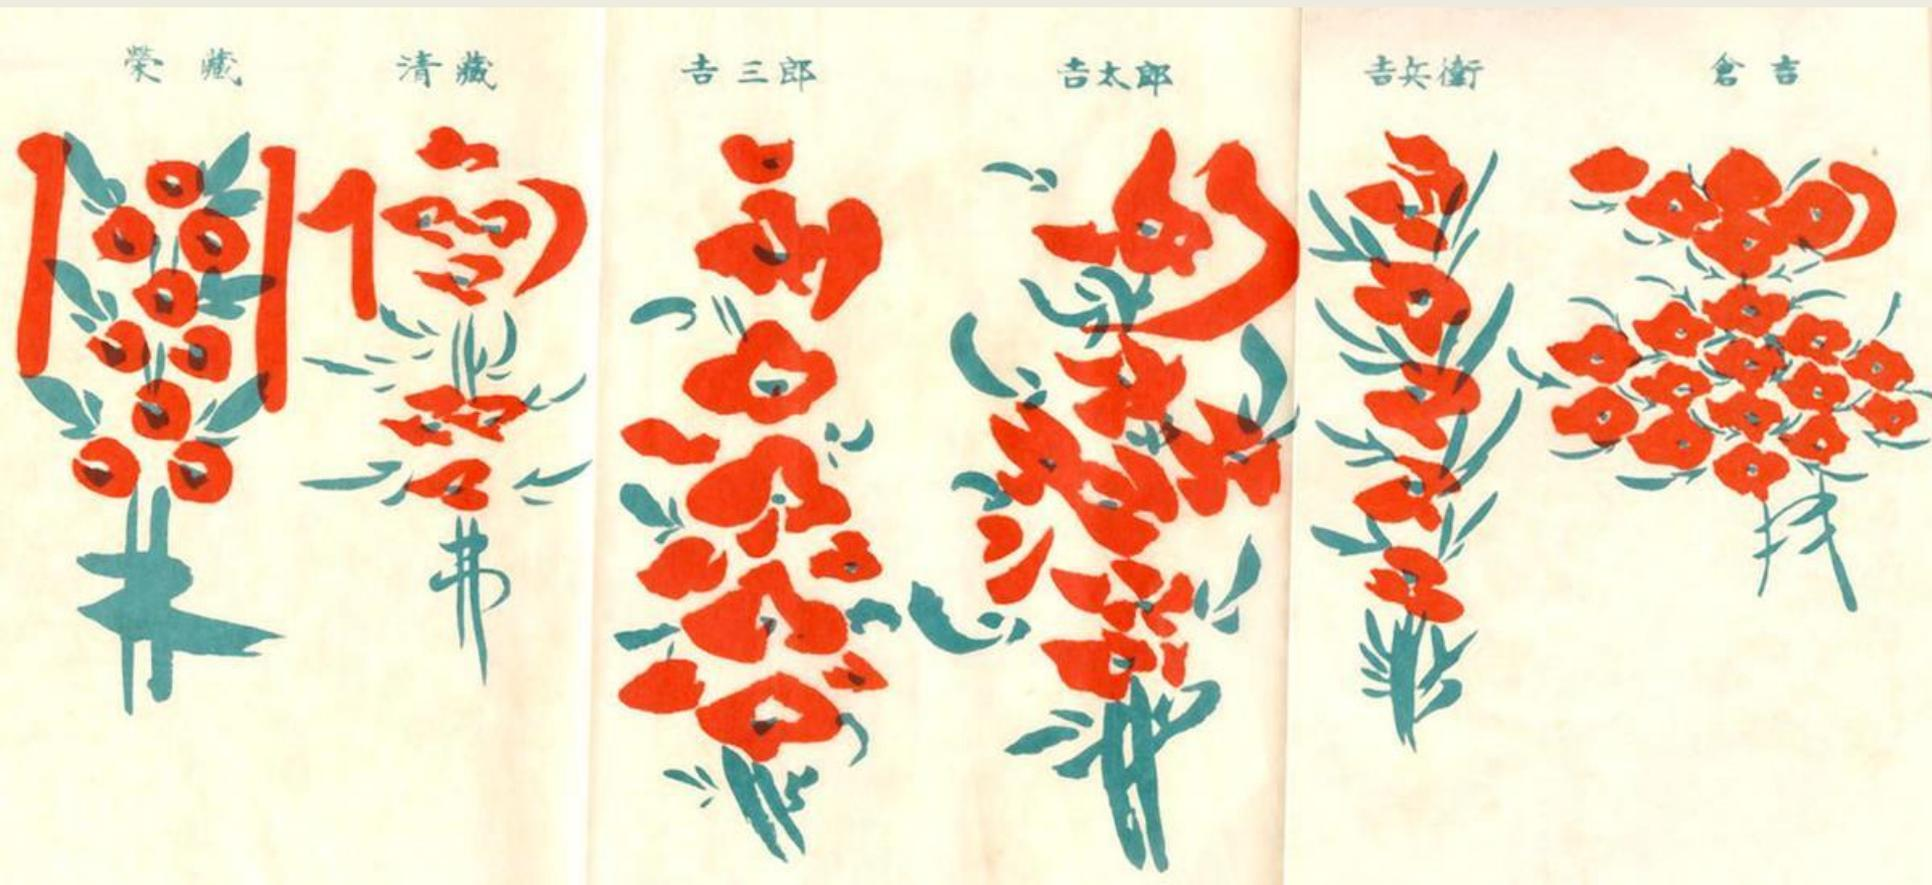 榮藏
清藏
𠮷三郎
𠮷太郎
𠮷兵衛
倉吉